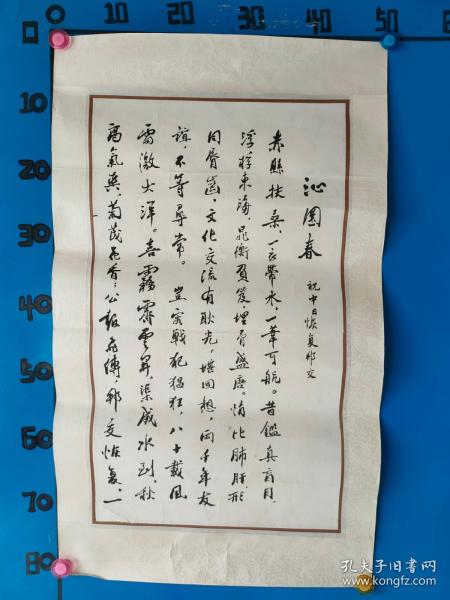 沁园春
祝中日恢复邦交
赤县扶桑，一衣带水，一苇可航。昔鑑真盲目，
浮桴東海，晁衡负笈，埋骨盛唐。情比肺肝，形
同唇齒，文化交流有耿光。堪回想，両千年友
誼，不等尋常。 岂容戰犯猖狂，八十載風
雷激大洋。喜霧霽雲開，渠成水到，秋
高氣爽，菊茂花香；公報飛傳，邦交恢复，一
0 10 20 30 40 50 60
10
20
30
40
50
60
70
80
孔夫子旧书网
www.kongfz.com